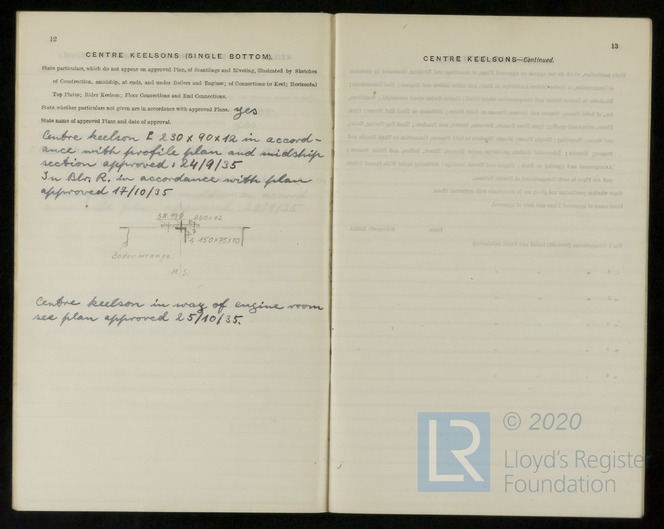 12
CENTRE KEELSONS (SINGLE BOTTOM).
State particulars, which do not appear on approved Plan, of Scantlings and Riveting, illustrated by Sketches
of Construction, amidship, at ends, and under Boilers and Engines; of Connections to Keel; Horizontal
Top Plates; Rider Keelson; Floor Connections and End Connections.
State whether particulars not given are in accordance with approved Plans. yes
State name of approved Plans and date of approval.
Centre keelson E 230 x 90 x 12 in accord-
ance with profile plan and midship
section approved: 24/9/35
In Blr, R. in accordance with plan
approved 17/10/35
260 x 12
150x75x10
Bodenwrange
M.S.
Centre keelson in way of engine room
see plan approved 25/10/35.
13
CENTRE KEELSONS—Continued.
© 2020
LR
Lloyd's Register
Foundation